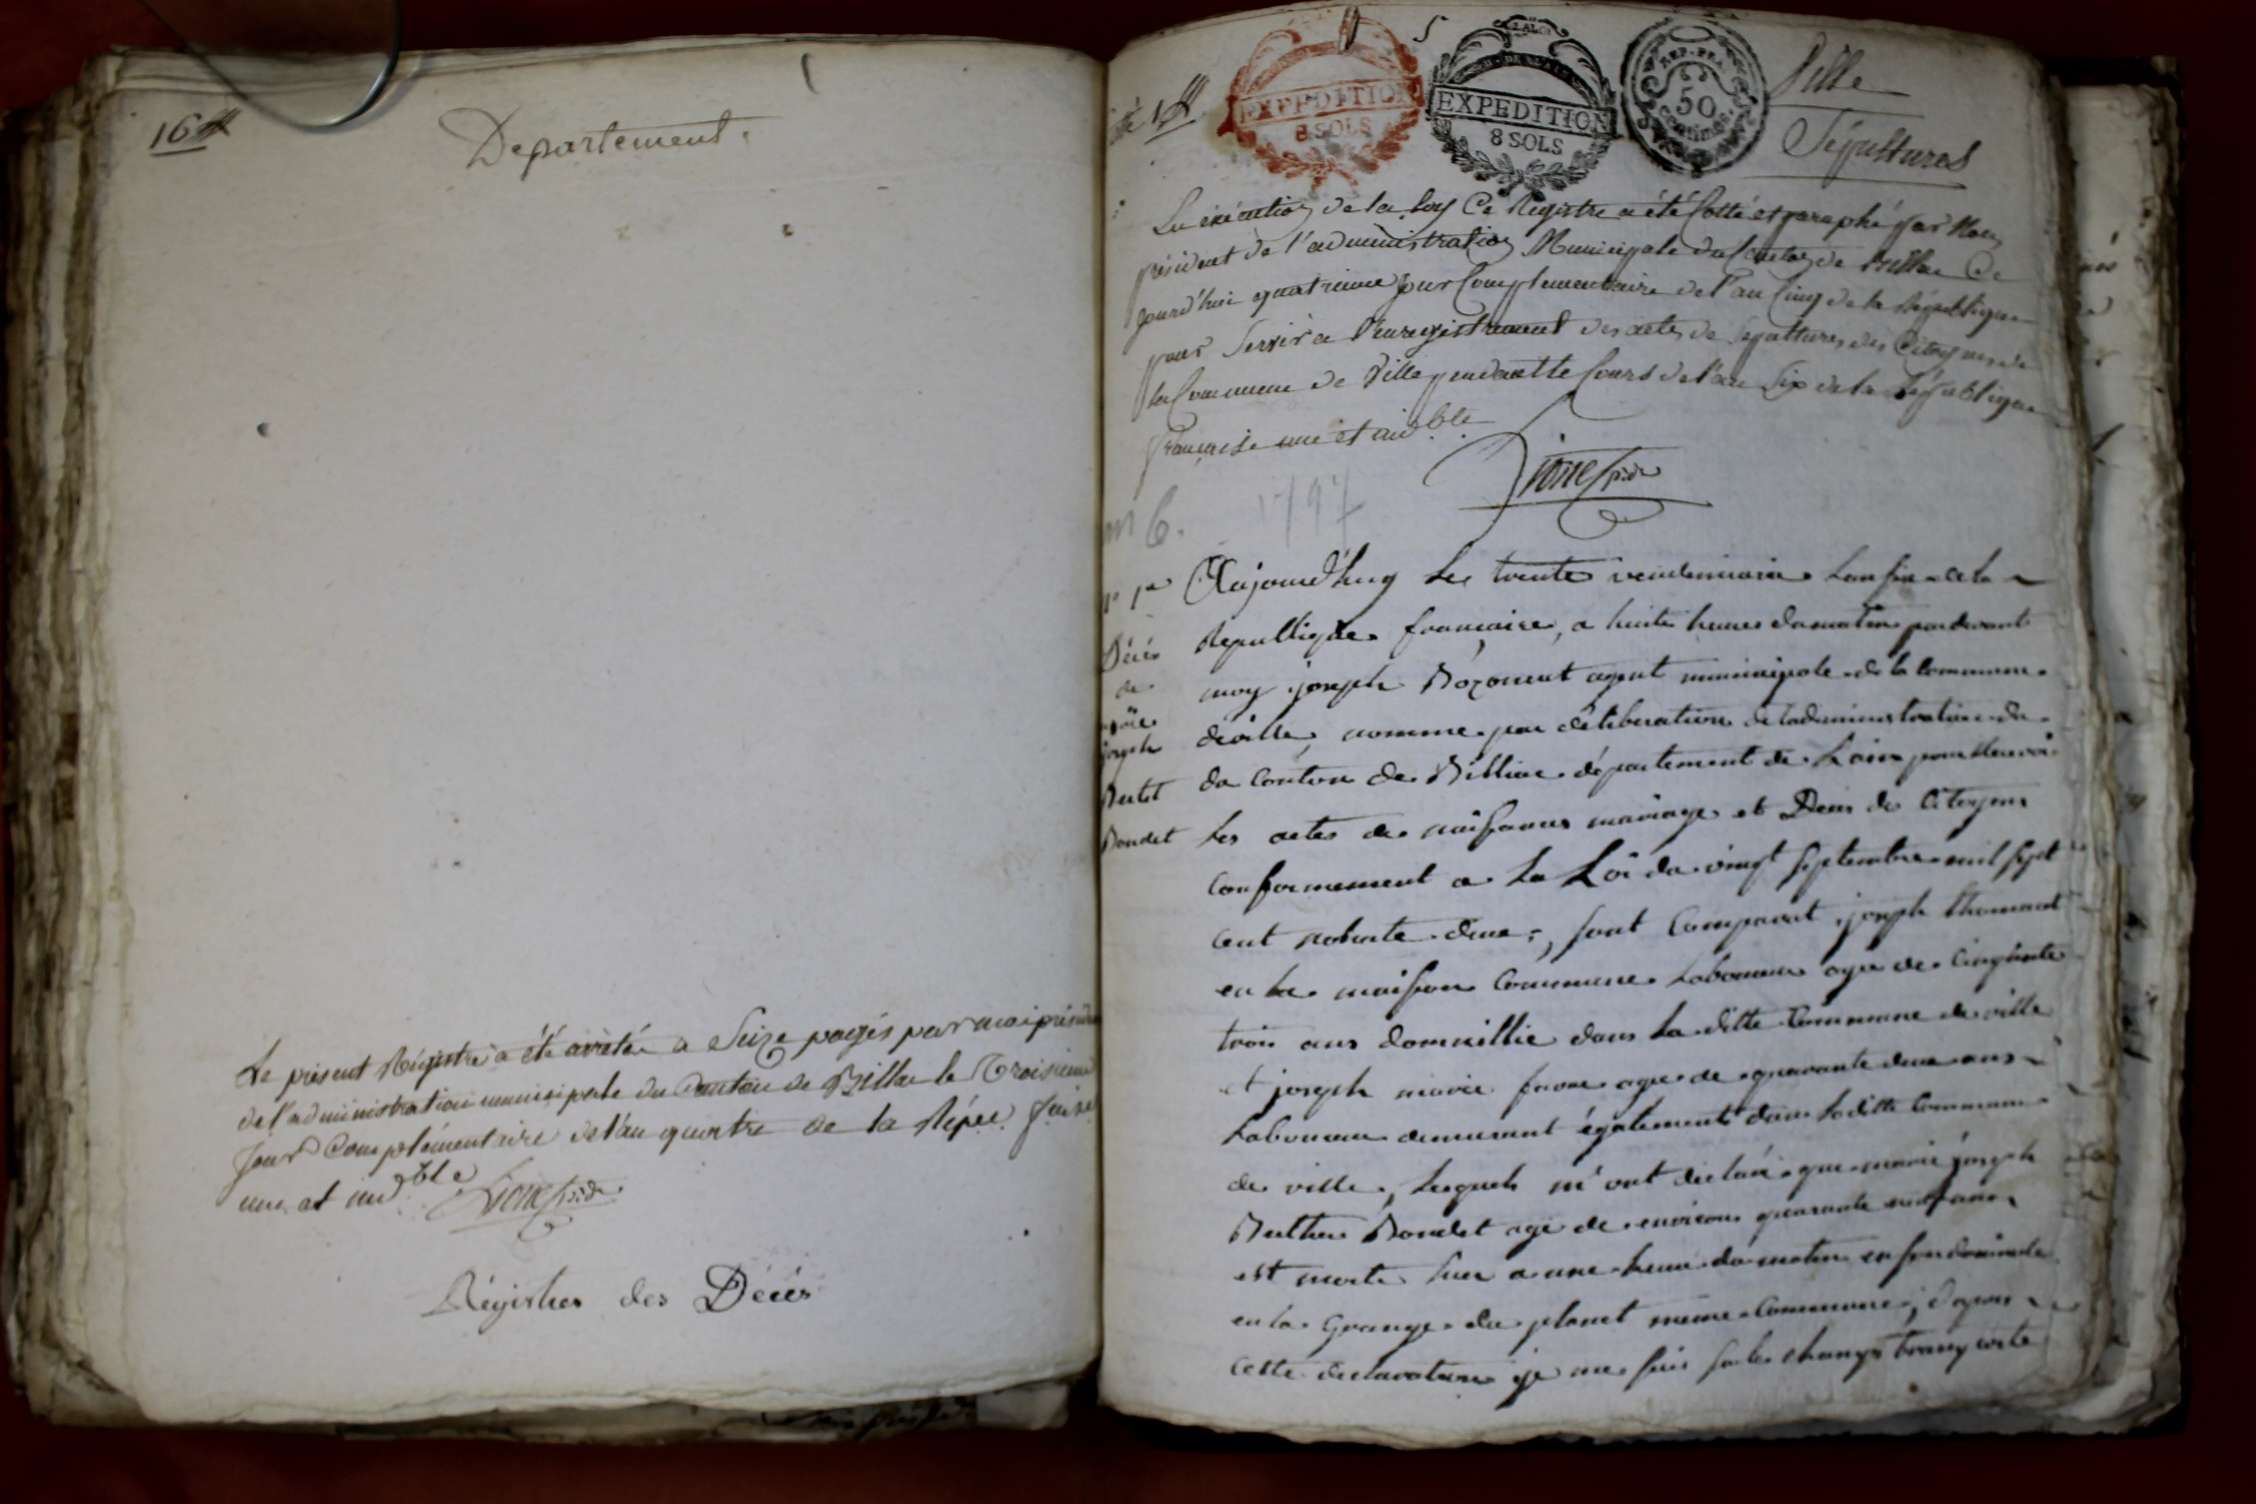 16
Departement.
Le présent Régistre a été arrêté a Seize pages par moi présid
de l'administration municipale du Canton de Billia le Troisieme
Jour Complémentaire de l'an quatre de la Répue. faise
une et indble
Régistres des Décés
EXPEDITION
8 SOLS
EXPEDITION
8 SOLS
REP. FRA.
50
centimes.
Ville
Sépultures
En éxécution de la loy Ce Registre a été Cotté et paraphé par Nous
président de l'administration Municipale du Canton de Billia Ce
jourd'hui quatrieme jour Complementaire de l'an Cinq de la République
pour Servir a l'enregistrement des actes de Sepultures des Citoyens de
la Commune de Ville pendant le Cours de l'an Six de la République
française une et indble
an 6. 1797
Décés
de
joseph
Bertet
Boudet
Aujourd'huy le trente vendemiaire l'an six de la
Republique francaise, a huite heures du matin par devant
moy joseph Bozonent agent municipale de la commune
deville, nomme par déliberation de l'administration du
du Conton de Billiac département de Lain pour recevoir
les actes de naissances mariage et Décés de Citoyens
conformement a la Loi du vingt septembre mil sept
cent nobante deux, sont Comparut joseph thomaset
en la maison Commune laboureur agee de Cinquante
trois ans domicillie dans la ditte Commune de ville
et joseph marie favre age de quarante deux ans
laboureur demeurant également dans laditte Commune
de ville, lesquels m'ont declaré que marie joseph
Berthet Boudet agé de environs quarante ans
est morte hier a une heure du matin en son domicile
en la Grange du planet meme Commune, d'apres
cette declaration je me suis sur le champs transporté